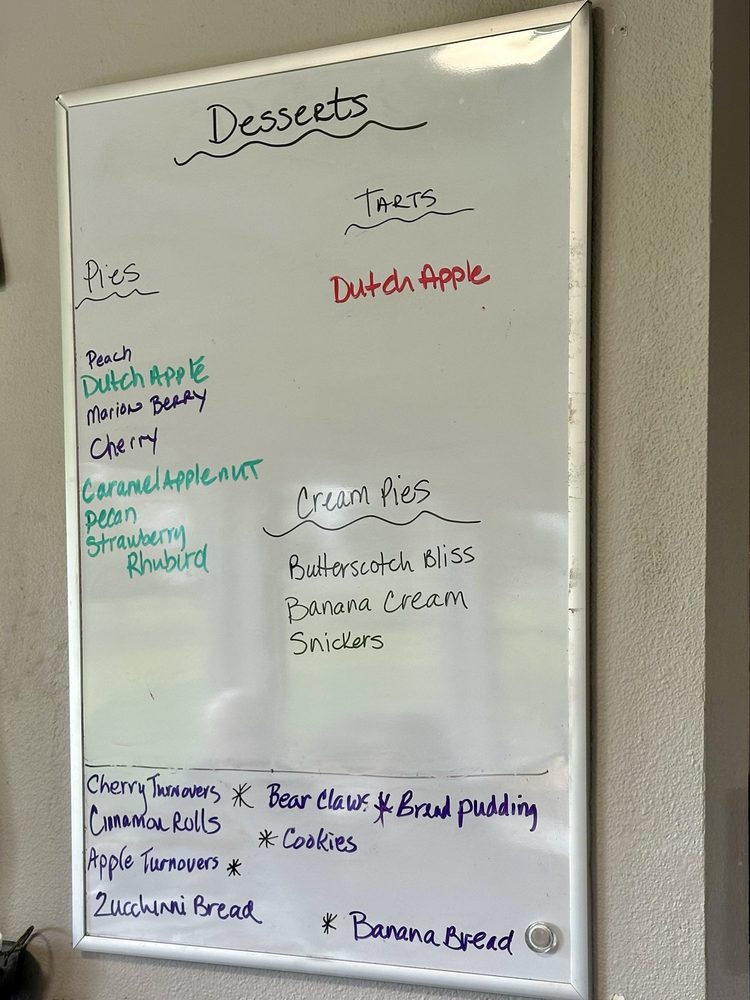 Desserts
TARTS
Dutch Apple
Pies
Peach
Dutch Apple
Marion Berry
Cherry
Caramel Apple nut
Pecan
Strawberry
Rhubird
Cream Pies
Butterscotch Bliss
Banana Cream
Snickers
Cherry Turnovers * Bear Claws * Bread pudding
Cinnamon Rolls
* Cookies
Apple Turnovers *
Zucchinni Bread
* Banana Bread